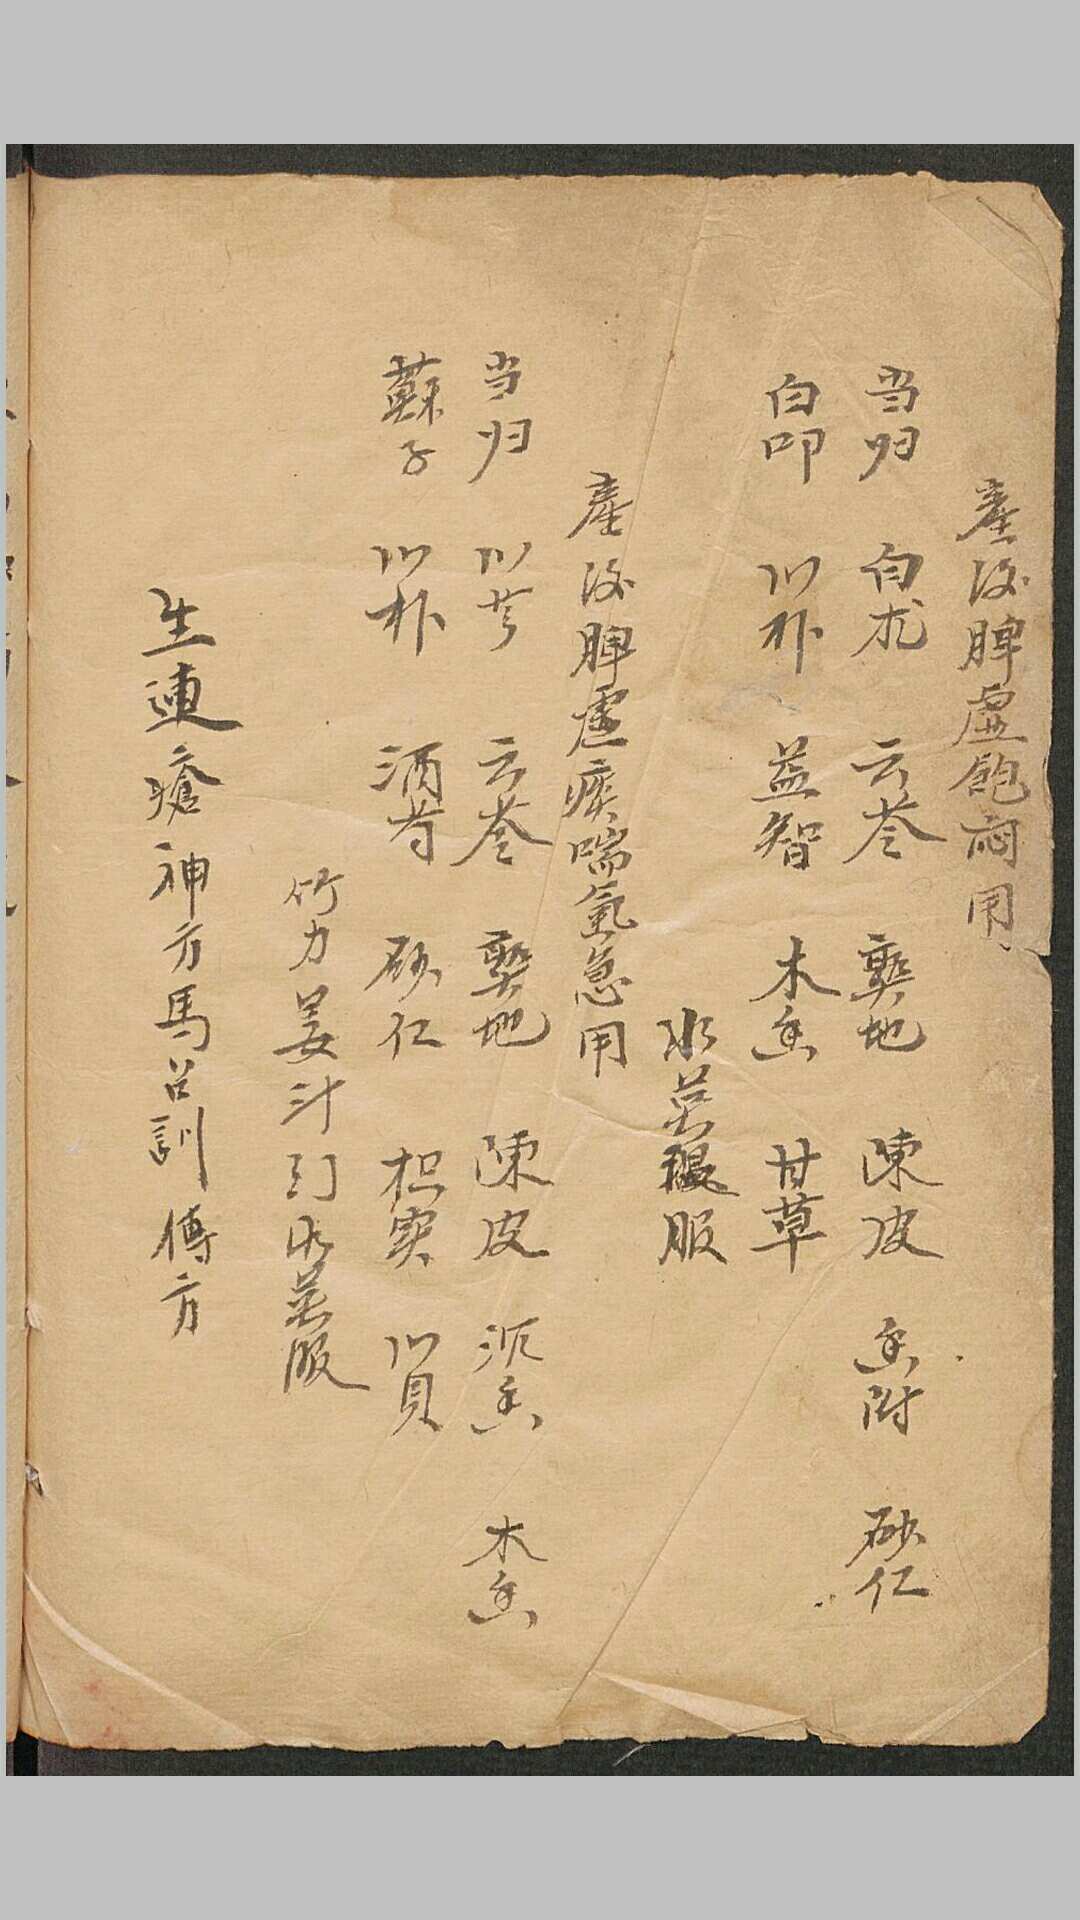 產後脾虛飽悶用
当归 白朮 云苓 熟地 陳皮 香附 砂仁
白叩 川朴 益智 木香 甘草
水煎服
產後脾虛痰喘氣急用
当归 川芎 云苓 熟地 陳皮 沉香 木香
蘇子 川朴 酒芍 砂仁 枳实 川貝
竹力姜汁 水煎服
生連瘡神方馬呂訓傳方